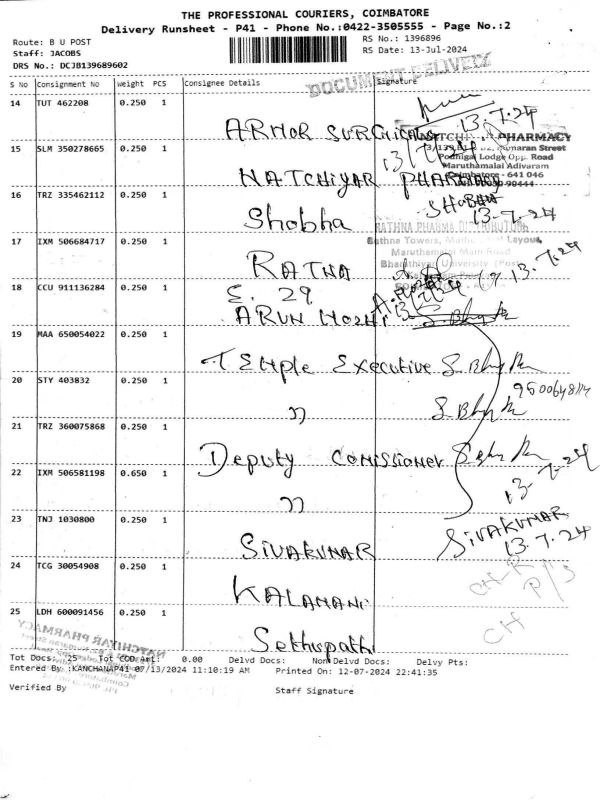 THE PROFESSIONAL COURIERS, COIMBATORE
Delivery Runsheet - P41 - Phone No.:0422-3505555 - Page No.:2
Route: B U POST
RS No.: 1396896
Staff: JACOBS
RS Date: 13-Jul-2024
DRS No.: DCJB139689602
DOCUMENT DELIVELY
S No Consignment No Weight PCS Consignee Details Signature
14 TUT 462208 0.250 1
ARMOR SURGICALS 13.7.24
NATCHIYAR PHARMACY
15 SLM 350278665 0.250 1
Maran Street
Podhigai Lodge Opp. Road
Maruthamalai Adivaram
Coimbatore - 641 046
NATCHIYAR PHARMACY
16 TRZ 335462112 0.250 1
SHOBHA
Shobha 13-7-24
RATHNA PHARMA DISTRIBUTORS
17 IXM 506684717 0.250 1
Rathna Towers, Layout,
Maruthamalai Main Road
Bharathiyar University (Post)
RATNA 13.7.24
18 CCU 911136284 0.250 1
E. 29
ARUN MOZHI 13/7/24
19 MAA 650054022 0.250 1
TEMple Executive
20 STY 403832 0.250 1
"
21 TRZ 360075868 0.250 1
Deputy Comissioner
22 IXM 506581198 0.650 1
13-7-24
"
23 TNJ 1030800 0.250 1
SIVAKUMAR SIVAKUMAR
13.7.24
24 TCG 30054908 0.250 1
KALAMANI
P/S
25 LDH 600091456 0.250 1
CH
NATCHIYAR PHARMACY
Sethupathi
Tot Docs: 25 Tot COD Amt: 0.00 Delvd Docs: Non Delvd Docs: Delvy Pts:
Entered By :KANCHANAP41 07/13/2024 11:10:19 AM Printed On: 12-07-2024 22:41:35
Verified By Staff Signature